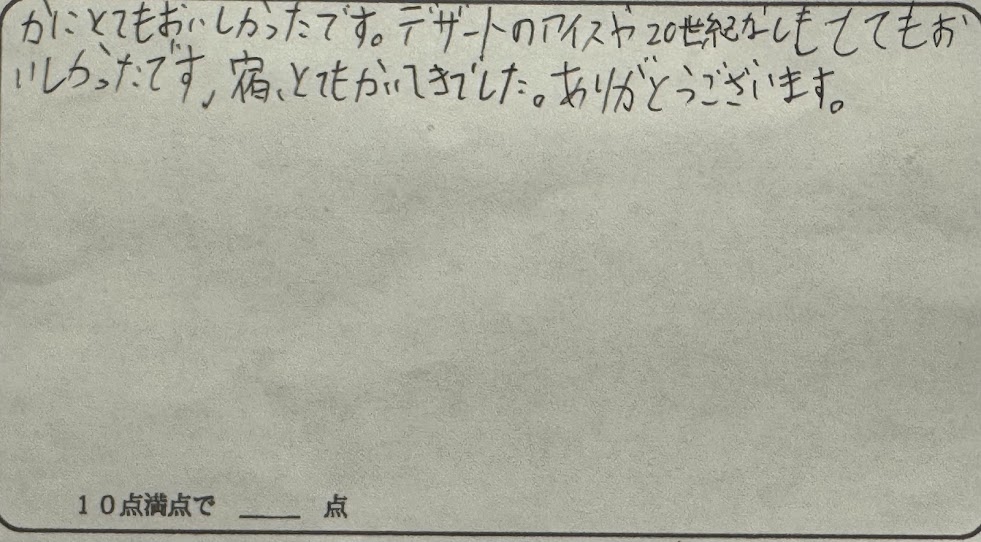 かにとてもおいしかったです。デザートのアイスや20世紀なしもとてもお
いしかったです、宿、とてもかいてきでした。ありがとうございます。
10点満点で ____ 点